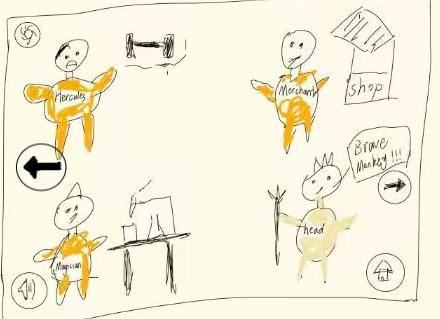 Hercules
Merchant
shop
Brave
Monkey!!!
Magician
head